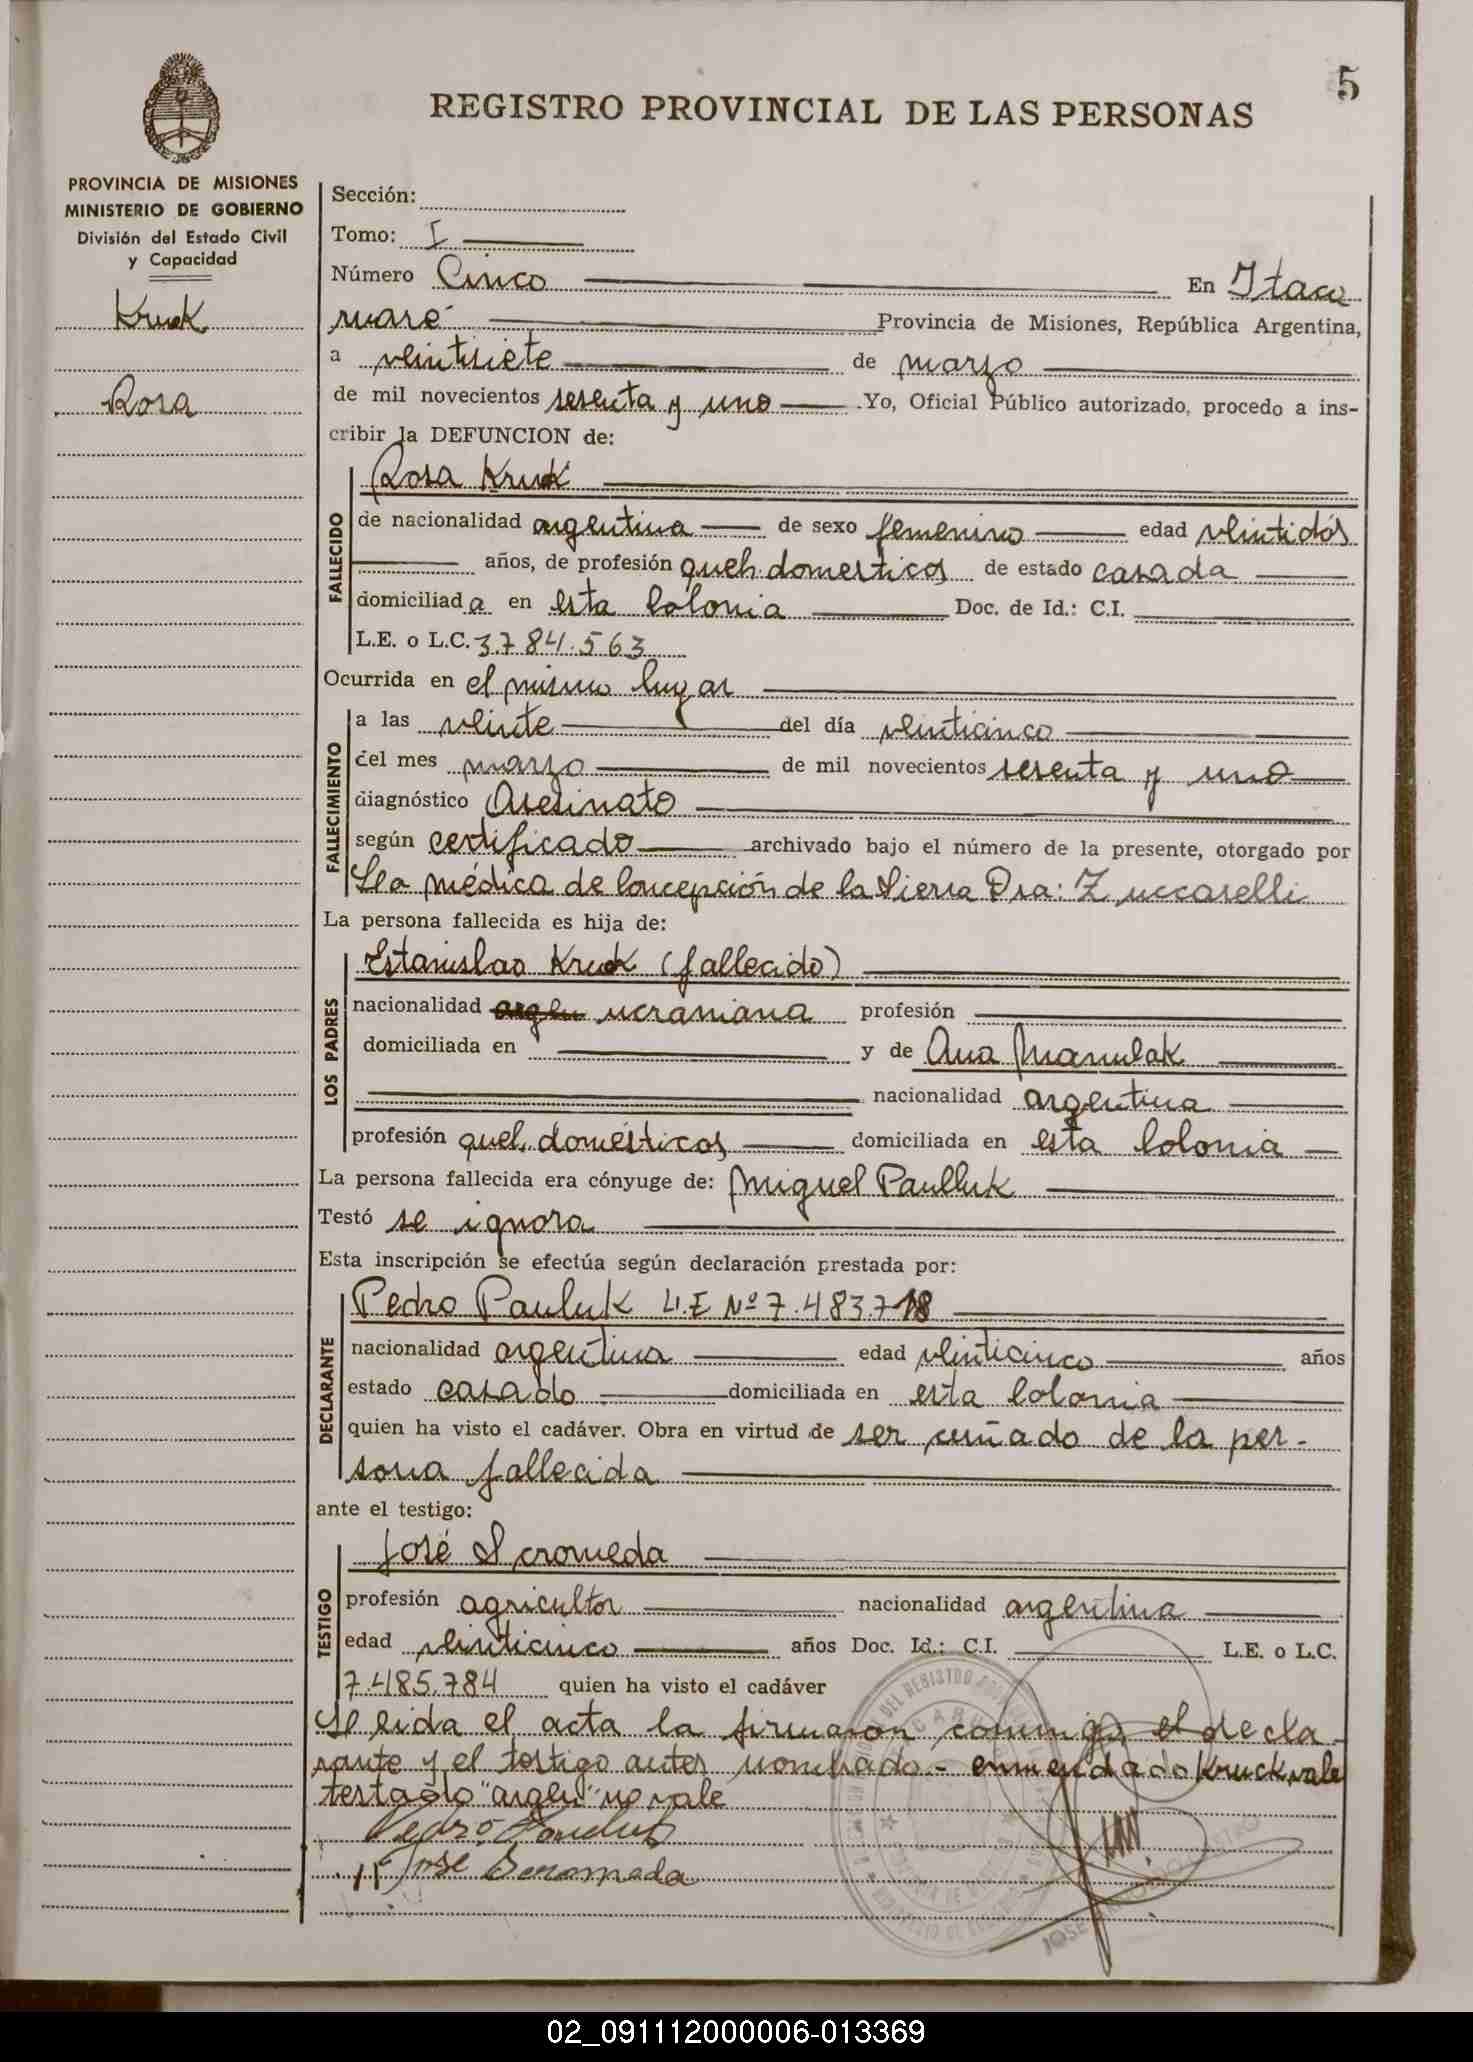 5
REGISTRO PROVINCIAL DE LAS PERSONAS
PROVINCIA DE MISIONES
MINISTERIO DE GOBIERNO
División del Estado Civil
y Capacidad
Kruk
Rosa
Sección:
Tomo: I
Número Cinco En Itaca
ruaré Provincia de Misiones, República Argentina,
a veintisiete de marzo
de mil novecientos sesenta y uno Yo, Oficial Público autorizado, procedo a ins-
cribir la DEFUNCION de:
FALLECIDO
Rosa Kruk
de nacionalidad argentina de sexo femenino edad veintidós
años, de profesión queh. domesticos de estado casada
domiciliada en esta Colonia Doc. de Id.: C.I.
L.E. o L.C. 3.784.563
Ocurrida en el mismo lugar
FALLECIMIENTO
a las veinte del día veinticinco
del mes marzo de mil novecientos sesenta y uno
diagnóstico Asesinato
según certificado archivado bajo el número de la presente, otorgado por
la médica de Concepción de la Sierra Dra: Zuccarelli
La persona fallecida es hija de:
LOS PADRES
Estanislao Kruk (fallecido)
nacionalidad argen ucraniana profesión
domiciliada en y de Ana Manulak
nacionalidad argentina
profesión queh. domésticos domiciliada en esta Colonia
La persona fallecida era cónyuge de: Miguel Paulluk
Testó se ignora
Esta inscripción se efectúa según declaración prestada por:
DECLARANTE
Pedro Pauluk L.E Nº 7.483.718
nacionalidad argentina edad veinticinco años
estado casado domiciliada en esta Colonia
quien ha visto el cadáver. Obra en virtud de ser cuñado de la per-
sona fallecida
ante el testigo:
TESTIGO
José Scromeda
profesión agricultor nacionalidad argentina
edad veinticinco años Doc. Id.: C.I. L.E. o L.C.
7.485.784 quien ha visto el cadáver
Leida el acta la firmaron conmigo el decla-
rante y el testigo antes nombrado - enmendado Kruck vale
testado "argen" no vale
Pedro Pauluk
José Scromeda
02_091112000006-013369